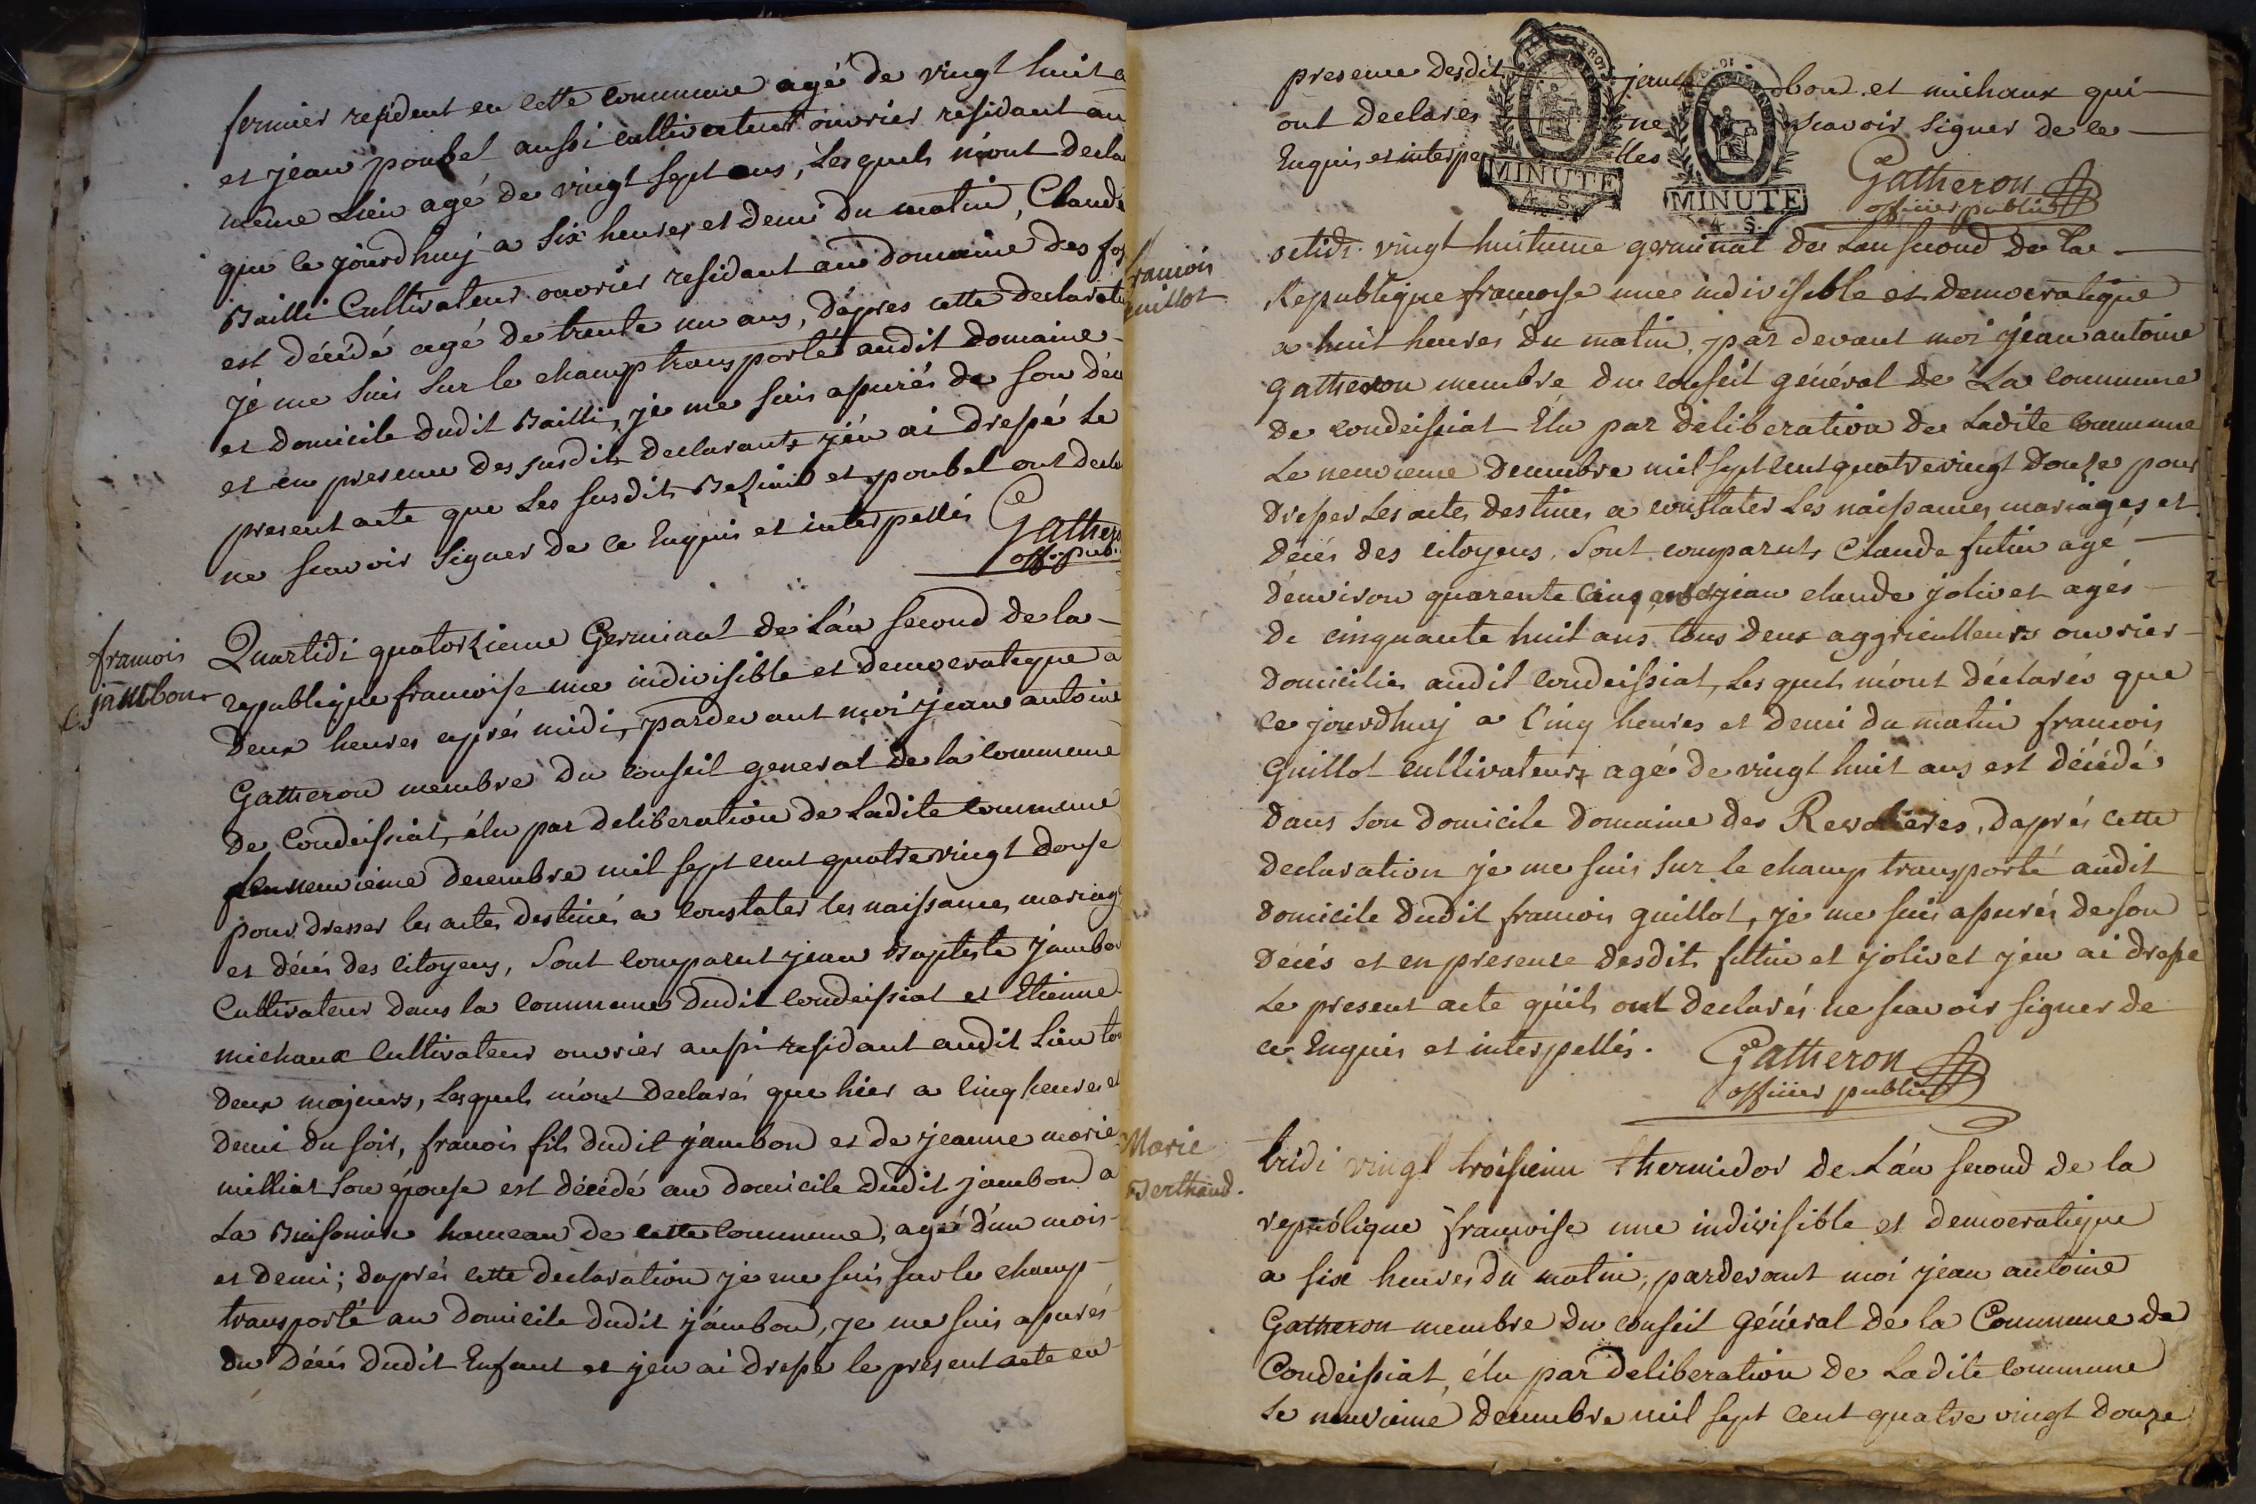 fermier resident en cette commune agé de vingt huit a
et jean poubel aussi cultivateur ouvrier residant au
même Lieu agé de vingt sept ans, Lesquels m'ont decla
que ce jourdhuj a six heures et demi du matin, Claude
Bailli Cultivateur ouvrier residant au domaine des fo
est décédé agé de trente un ans, d'apres cette declarati
je me suis sur le champ transporté audit domaine
et domicile dudit Bailli, je me suis assurés de son déc
et en presence des susdits declarants j'en ai dressé Le
present acte que Les susdits et poubel ont decla
ne scavoir signer de ce Enquis et interpellés Gathero
off. pub.
francois
jambon
Quartidi quatorzieme Germinal de L'an second de la
republique francoise une indivisible et democratique a
deux heures après midi, pardevant moi jean antoine
Gatheron membre du conseil general de la commune
de Condeissiat, élu par deliberation de Ladite commune
le neuvieme decembre mil sept cent quatre vingt douse
pour dresser les actes destinés a constater les naissances mariag
et décés des citoyens, Sont comparut jean Baptiste jambon
Cultivateur dans la commune dudit condeissiat et Etienne
michaux Cultivateur ouvrier aussi residant audit Lieu tou
deux majeurs, Lesquels m'ont declarés que hier a cinq heures et
demi du soir, francois fils dudit jambon et de jeanne marie
milliat son épouse est décédé au domicile dudit jambon a
La hameau de cette commune, agé d'un mois
et demi; daprés cette declaration je me suis sur le champ
transporté au domicile dudit jambon, je me suis assurés
du Décés dudit Enfant et jen ai dressé le present acte en
presence desdit jam bon et michaux qui
ont declarés ne scavoir signer de ce
Enquis et interpe lles
MINUTE
4. S.
MINUTE
4. S.
Gatheron
officier public
francois
guillot
octidi vingt huitieme germinal de Lan second de La
Republique francoise une indivisible et democratique
a huit heures du matin, par devant moi jean antoine
gatheron membre du conseil général de La commune
de condeissiat Elu par deliberation de Ladite commune
Le neuvieme Decembre mil sept cent quatrevingt Douze pour
dresser Les actes destines a constater Les naissances mariages et
décés des citoyens, Sont comparuts Claude futin agé
d'environ quarente cinq ans jean claude jolivet agés
de cinquante huit ans tous deux aggriculteurs ouvrier
domiciliés audit condeissiat, Lesquels m'ont déclarés que
ce jourdhuj a cinq heures et demi du matin francois
Guillot cultivateur agé de vingt huit ans est décédé
dans son domicile domaine des , daprés cette
declaration je me suis sur le champ transporté audit
domicile dudit francois guillot, je me suis assurés de son
décés et en presence desdits futin et jolivet jen ai dressé
Le present acte qu'ils ont declarés ne scavoir signer de
ce Enquis et interpellés. Gatheron
officier public
Marie
Berthaud.
tridi vingt troisieme thermidor de L'an second de la
republique francoise une indivisible et democratique
a six heures du matin, pardevant moi jean antoine
Gatheron membre du conseil Général de la Commune de
Condeissiat, élu par deliberation de Ladite commune
Le neuvieme decembre mil sept cent quatre vingt douze